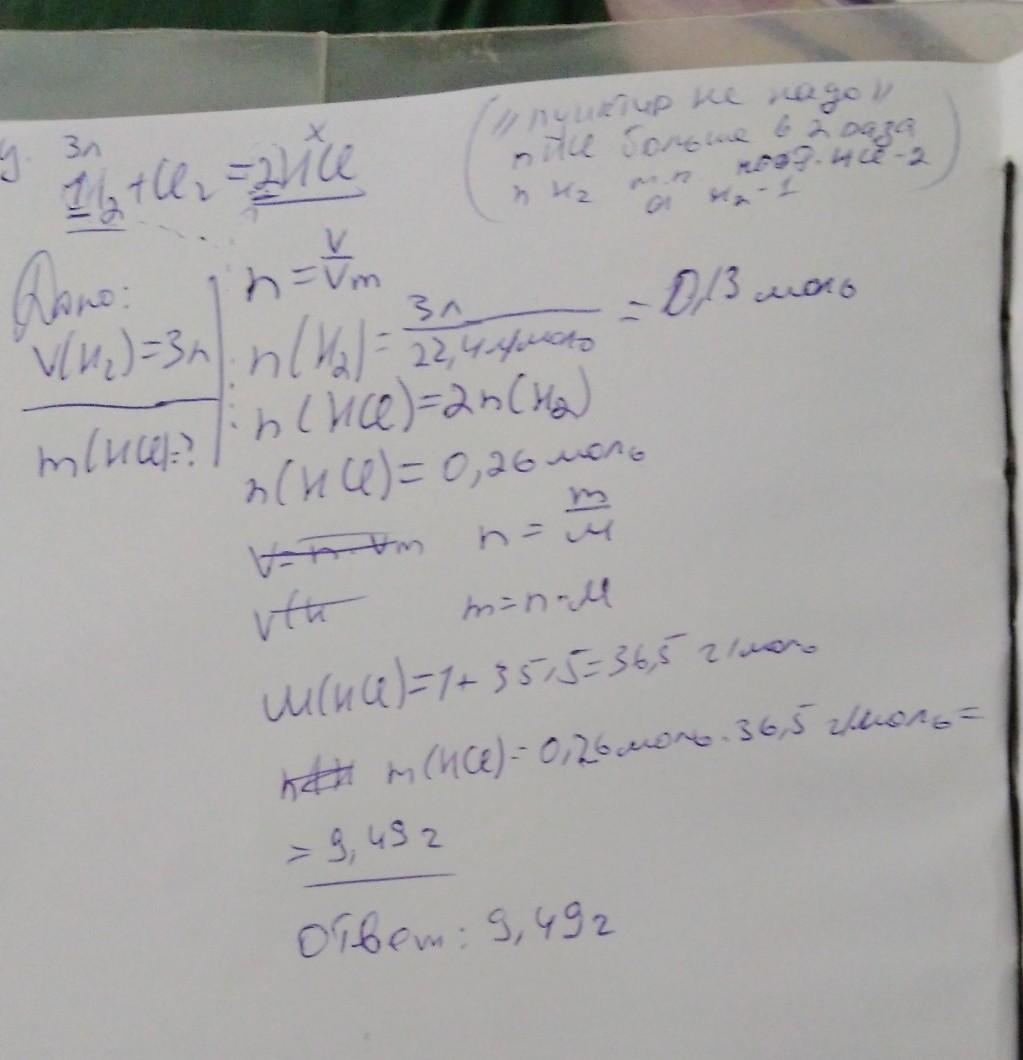 3л x
1H₂ + Cl₂ = 2HCl
("пунктир не надо"
n HCl больше в 2 раза
n H₂ т.к. коэф. HCl - 2
а H₂ - 1)
Дано:
V(H₂) = 3л
m(HCl) = ?
n = V/Vm
n(H₂) = 3л/22,4 л/моль = 0,13 моль
n(HCl) = 2n(H₂)
n(HCl) = 0,26 моль
V = n · Vm n = m/M
V(H m = n · M
M(HCl) = 1 + 35,5 = 36,5 г/моль
m(HCl) = 0,26 моль · 36,5 г/моль =
= 9,49 г
Ответ: 9,49 г